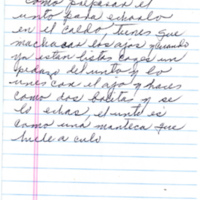 Como preparar el
unto para echarlo
en el caldo, tienes que
machacar los ajos y cuando
ya estan listos coges un
pedazo del unto y lo
unes con el ajo y haces
como dos bolitas y se
lo echas, el unto es
como una manteca que
huele a culo